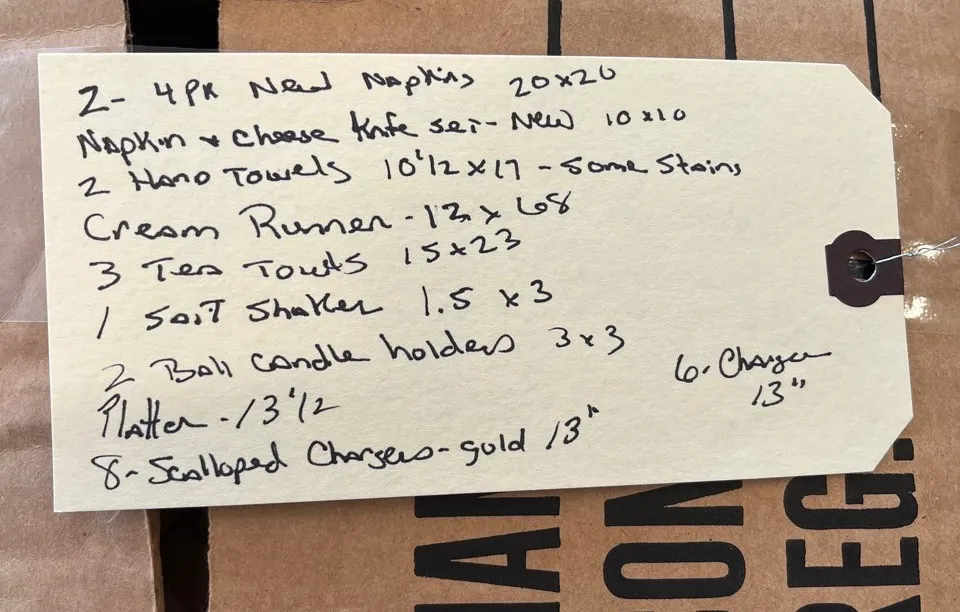 2- 4PK New Napkins 20x20
Napkin & Cheese Knife set - New 10x10
2 Hand Towels 10 1/2 x 17 - Some Stains
Cream Runner - 13 x 68
3 Tea Towels 15x23
1 Salt Shaker 1.5 x 3
2 Ball Candle holders 3x3
Platter - 13 1/2
8- Scalloped Chargers - gold 13"
6- Charger
13"
REG.